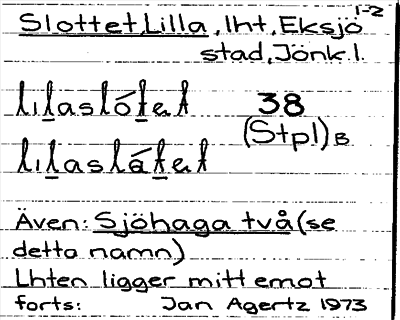 1-2
Slottet, Lilla, lht, Eksjö
stad, Jönk.l.
38
(Stpl) B
Även: Sjöhaga två (se
detta namn)
Lhten ligger mitt emot
forts: Jan Agertz 1973